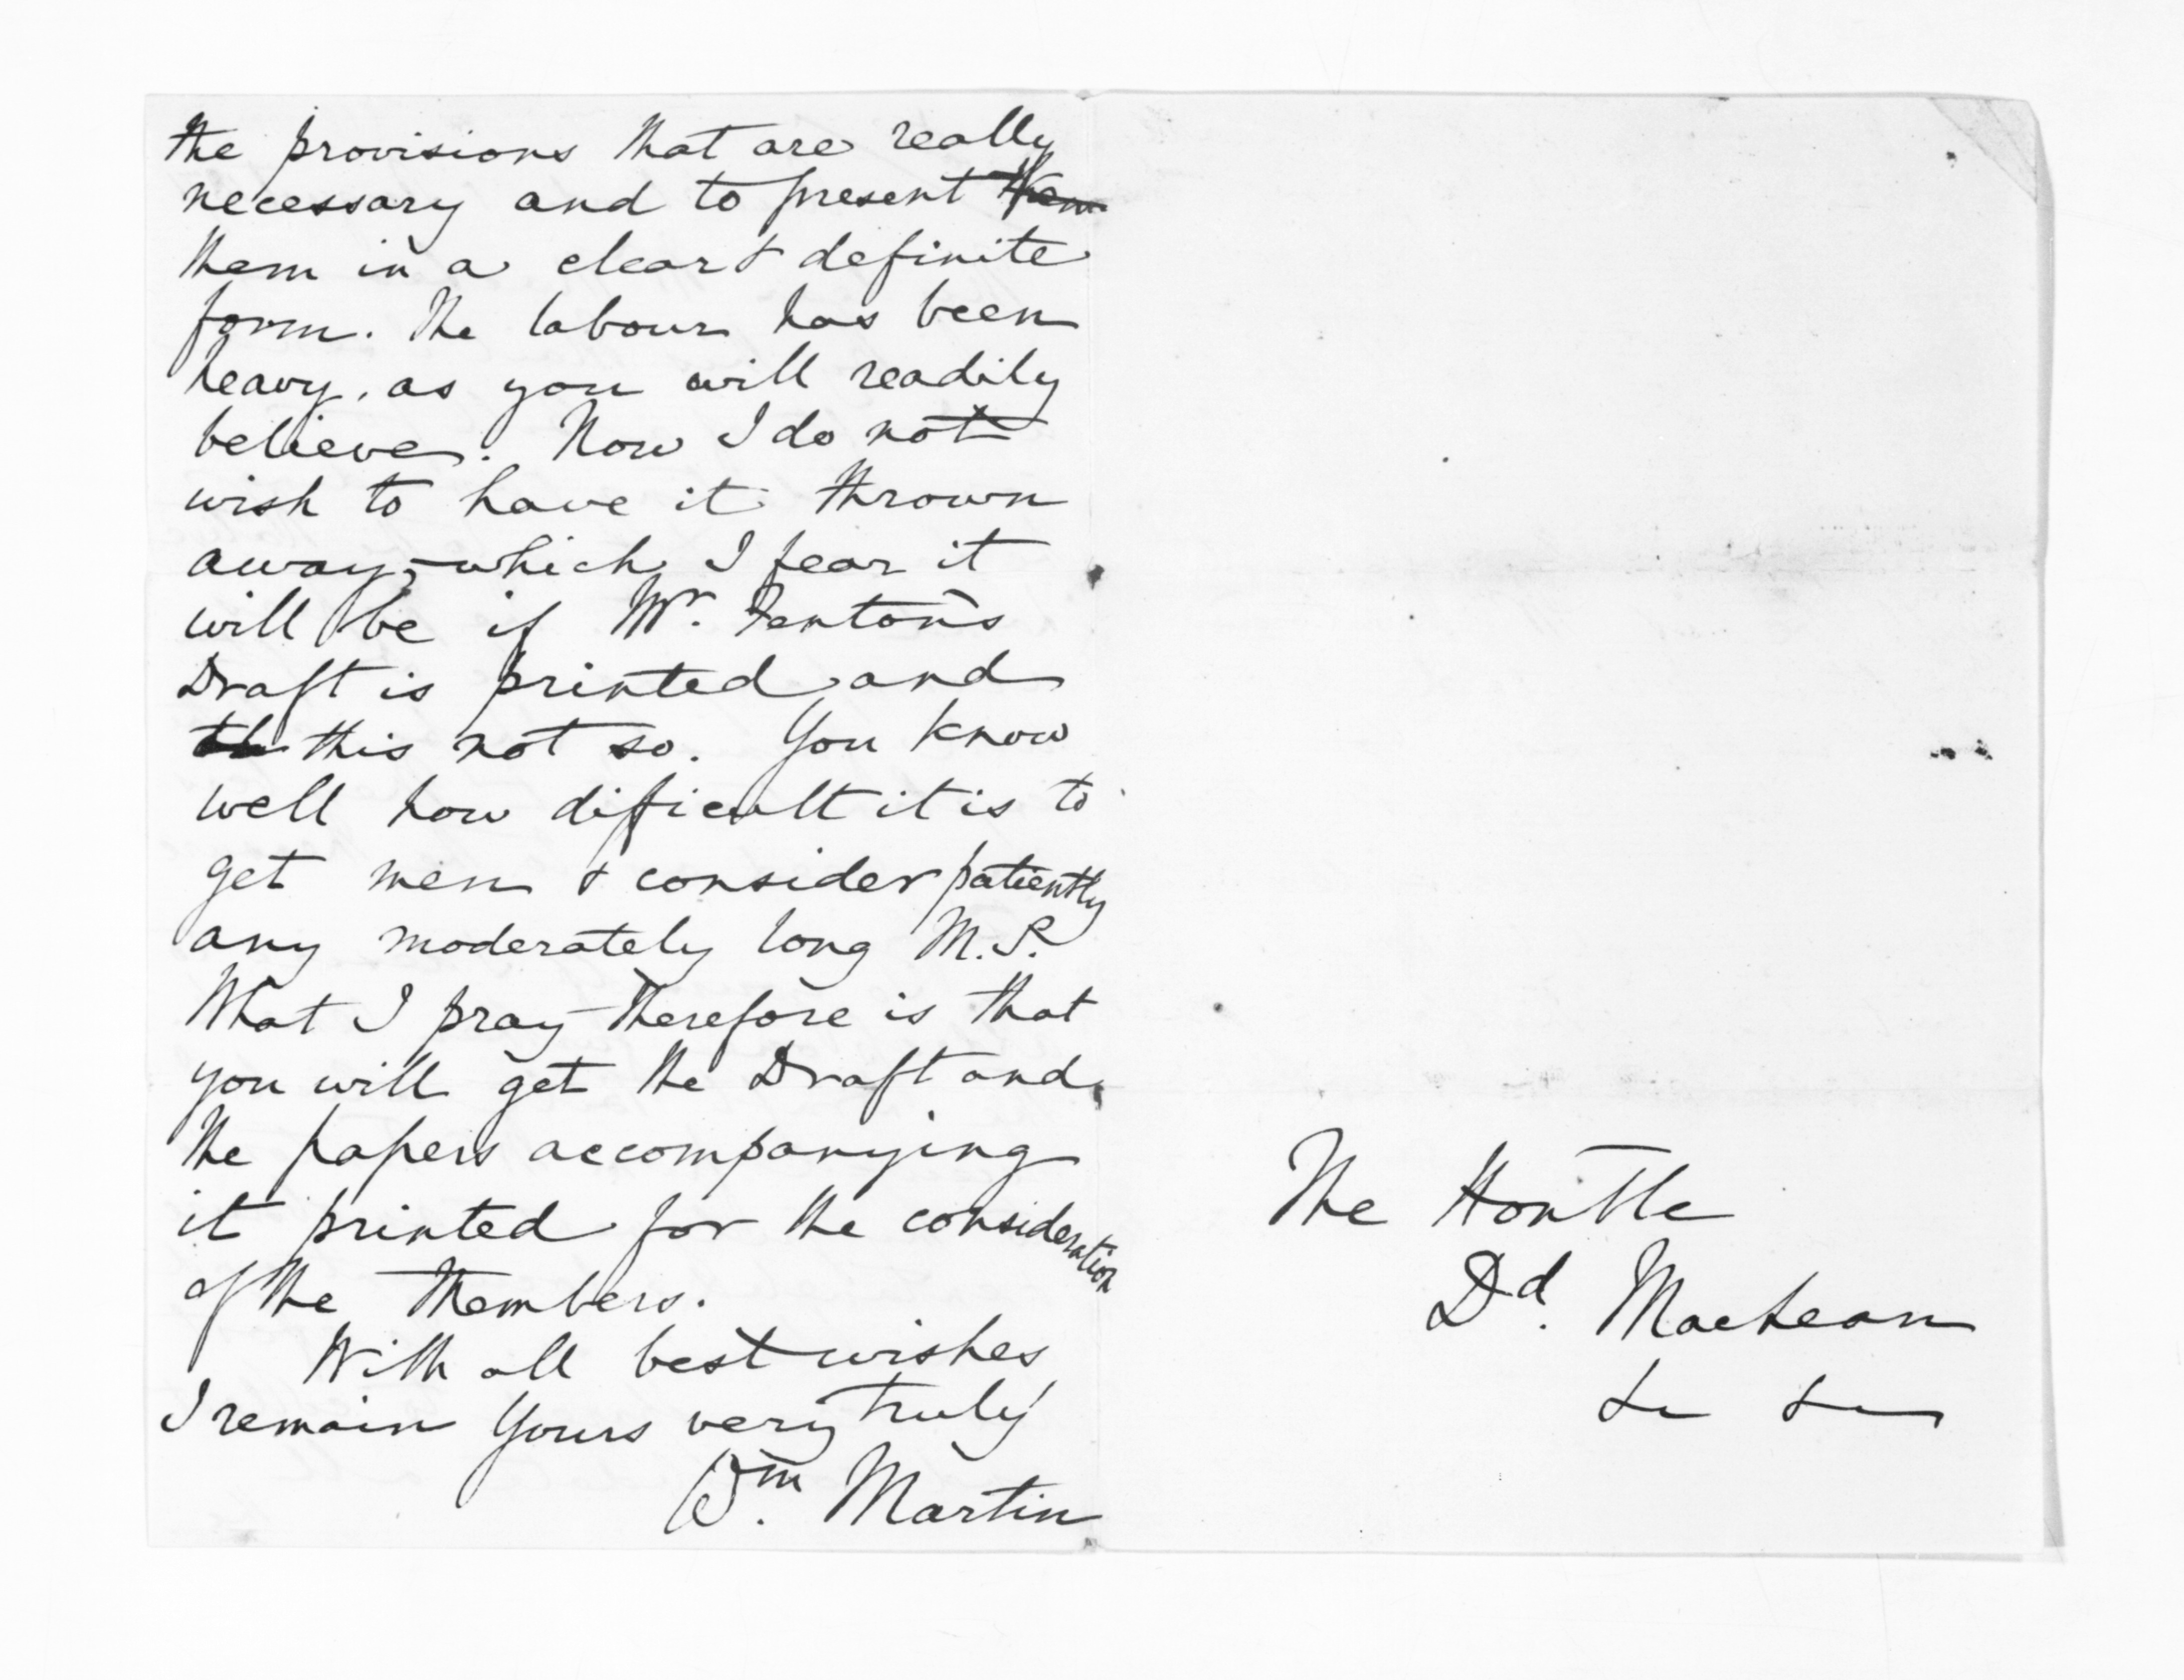 the provisions that are really
necessary and to present them
them in a clear & definite
form. The labour has been
heavy, as you will readily
believe. Now I do not
wish to have it thrown
away, which I fear it
will be if Mr. Fenton's
Draft is printed and
th this not so. You know
well how difficult it is to
get men & consider patiently
any moderately long M.S.
What I pray therefore is that
you will get the Draft and
the papers accompanying
it printed for the consideration
of the Members.
With all best wishes
I remain Yours very truly
Wm. Martin
The Honble
Dd. MacLean
&c &c